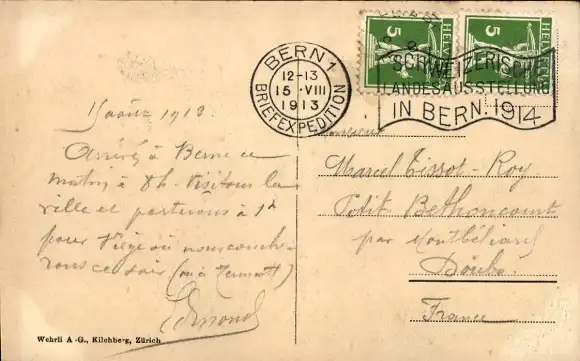 BERN 1
12-13
15.VIII
1913
BRIEFEXPEDITION
HELVETIA
5
HELVETIA
5
SCHWEIZERISCHE
LANDESAUSSTELLUNG
IN BERN. 1914
15 août 1913.
Arrivés à Berne ce
matin à 8h. Visitons la
ville et partirons à 1h
pour Viège où nous couche-
rons ce soir (ou à Zermatt)
Edmond
Monsieur
Marcel Tissot-Roy
Petit Bethoncourt
par Montbéliard
Doubs.
France
Wehrli A.-G., Kilchberg, Zürich